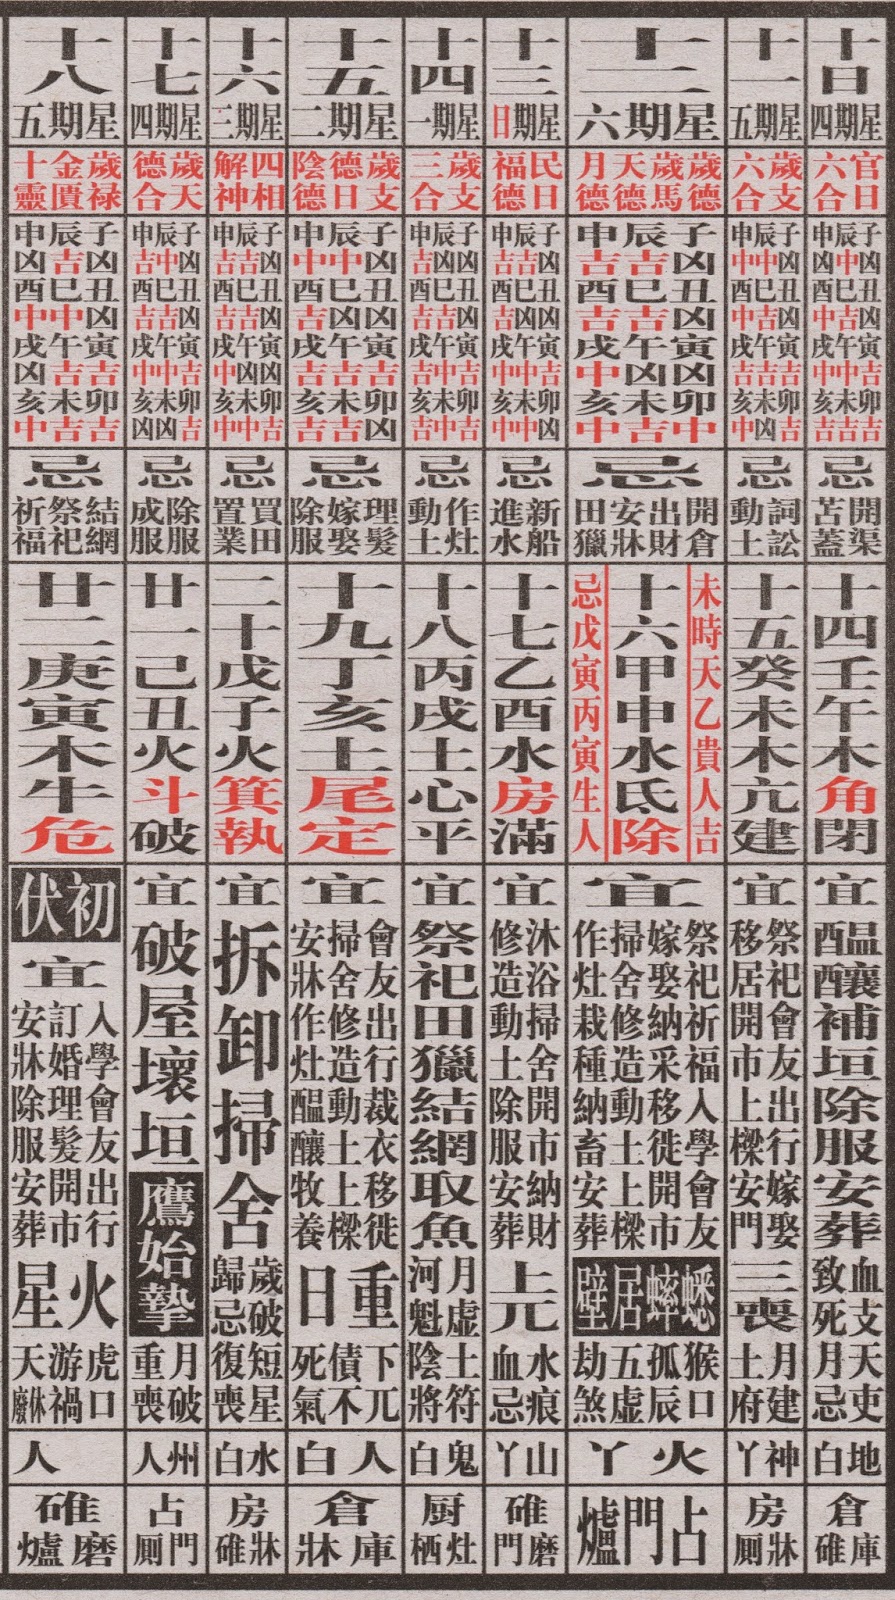 十日
星期四
官日
六合
子凶丑凶寅吉卯吉
辰中巳吉午中未吉
申凶酉中戌中亥吉
忌
開渠
苫蓋
十四壬午木角閉
宜
醞釀補垣除服安葬
血支
致死
天吏
月忌
地白
倉庫
碓
十一
星期五
歲支
六合
子凶丑凶寅吉卯吉
辰中巳中午吉未凶
申中酉吉戌吉亥中
忌
詞訟
動土
十五癸未木亢建
宜
祭祀會友出行嫁娶
移居開市上樑安門
三喪
月建
土府
神丫
房牀
厠
十二
星期六
歲德
歲馬
天德
月德
子凶丑凶寅凶卯中
辰吉巳吉午凶未吉
申吉酉吉戌中亥中
忌
開倉
出財
安牀
田獵
未時天乙貴人吉
十六甲申水氐除
忌戊寅丙寅生人
宜
祭祀祈福入學會友
嫁娶納采移徙開市
掃舍修造動土上樑
作灶栽種納畜安葬
蟋蟀居壁
猴口
孤辰
五虛
劫煞
火丫
占門爐
十三
星期日
民日
福德
子凶丑凶寅吉卯凶
辰吉巳吉午中未中
申吉酉中戌中亥中
忌
新船
進水
十七乙酉水房滿
宜
沐浴掃舍開市納財
修造動土除服安葬
上元
水痕
血忌
山丫
碓磨
門
十四
星期一
歲支
三合
子凶丑凶寅吉卯吉
辰凶巳吉午中未中
申吉酉吉戌中亥吉
忌
作灶
動土
十八丙戌土心平
宜
祭祀田獵結網取魚
月虛
河魁
土符
陰將
鬼白
厨灶
栖
十五
星期二
歲支
德日
陰德
子凶丑凶寅吉卯凶
辰中巳凶午吉未吉
申中酉吉戌吉亥吉
忌
理髮
嫁娶
除服
十九丁亥土尾定
宜
會友出行裁衣移徙
掃舍修造動土上樑
安牀作灶醞釀牧養
重日
下兀
債不
死氣
人白
倉庫
牀
十六
星期三
四相
解神
子凶丑凶寅凶卯吉
辰吉巳吉午凶未中
申吉酉吉戌中亥中
忌
買田
置業
二十戊子火箕執
宜
拆卸掃舍
歲破
歸忌
短星
復喪
水白
房牀
碓
十七
星期四
歲天
德合
子凶丑凶寅吉卯吉
辰中巳吉午中未凶
申吉酉吉戌中亥凶
忌
除服
成服
廿一己丑火斗破
宜
破屋壞垣
鷹始摯
月破
重喪
州人
占門
厠
十八
星期五
歲祿
金匱
十靈
子凶丑凶寅吉卯吉
辰吉巳中午吉未吉
申凶酉中戌凶亥中
忌
結網
祭祀
祈福
廿二庚寅木牛危
初伏
宜
入學會友出行
訂婚理髮開市
安牀除服安葬
火星
虎口
游禍
天休廢
人
碓磨
爐